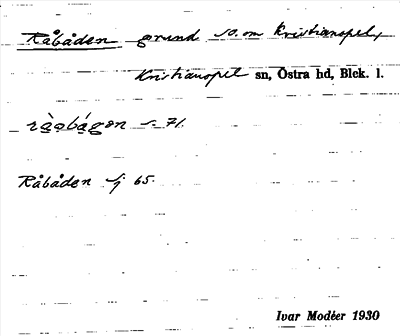 Råbåden grund so. om Kristianopel,
Kristianopel sn, Östra hd, Blek. l.
ràəbágən s. 71.
Råbåden sj 65.
Ivar Modéer 1930